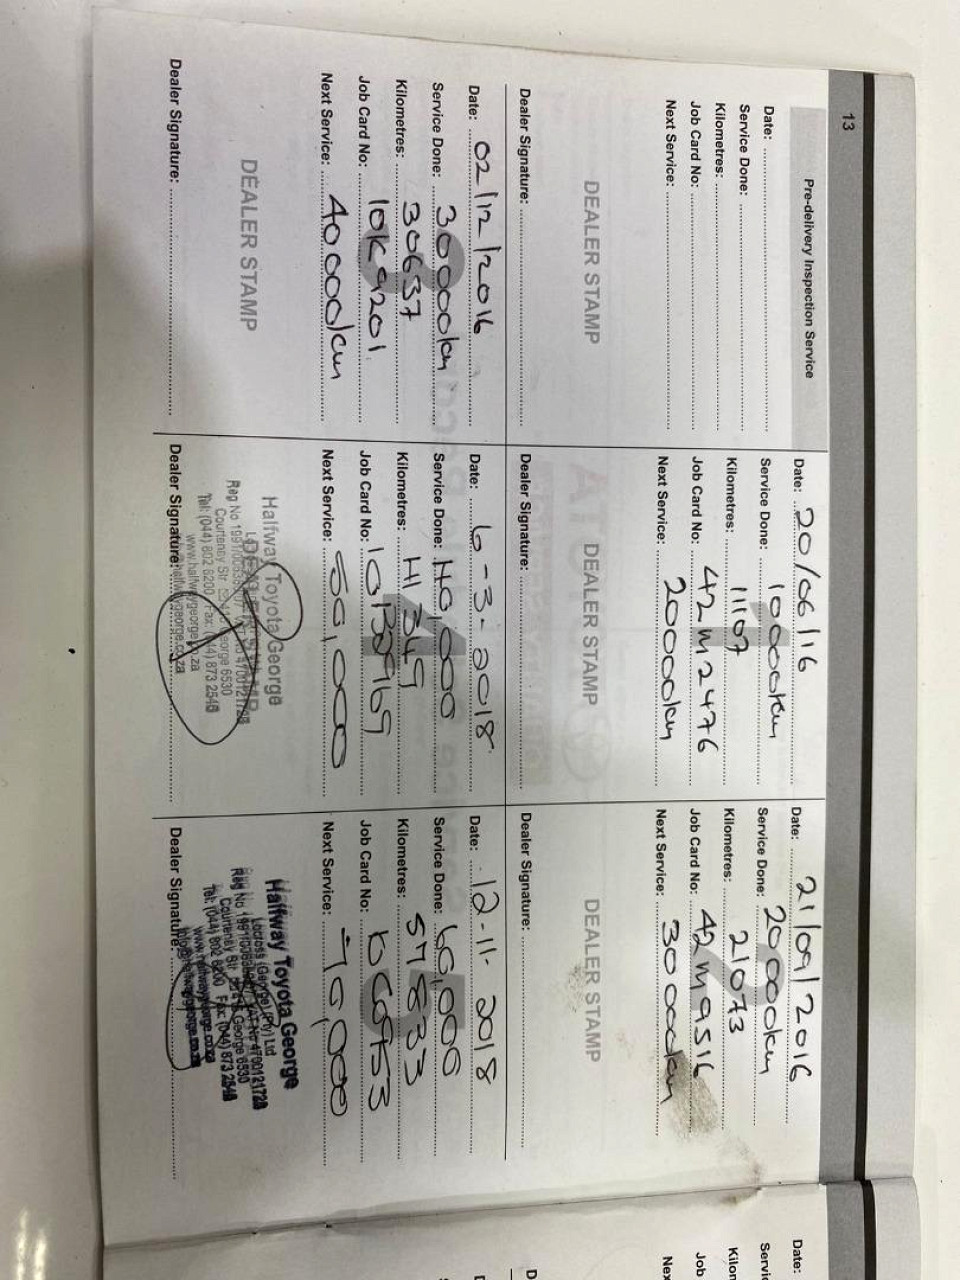 13
Pre-delivery Inspection Service
Date:
Service Done:
Kilometres:
Job Card No:
Next Service:
DEALER STAMP
Dealer Signature:
1
Date: 20/06/16
Service Done: 10000km
Kilometres: 11107
Job Card No: 42M2476
Next Service: 20000km
DEALER STAMP
Dealer Signature:
2
Date: 21/09/2016
Service Done: 20000km
Kilometres: 21073
Job Card No: 42M9516
Next Service: 30000km
DEALER STAMP
Dealer Signature:
3
Date: 02/12/2016
Service Done: 30000km
Kilometres: 30637
Job Card No: 10K9201
Next Service: 40000km
DEALER STAMP
Dealer Signature:
4
Date: 6-3-2018
Service Done: 40,000
Kilometres: 41349
Job Card No:
Next Service:
DEALER STAMP
Halfway Toyota George
Reg No
Courtenay Str George 6530
Tel: (044) 802 6200 Fax: (044) 873 2546
Dealer Signature:
5
Date: 12-11-2018
Service Done:
Kilometres: 57833
Job Card No:
Next Service:
Halfway Toyota George
(George) (Pty) Ltd
Reg No VAT Nr 4700121728
Courtenay Str George 6530
Tel: (044) 802 6200 Fax: (044) 873 2546
Dealer Signature:
Date: